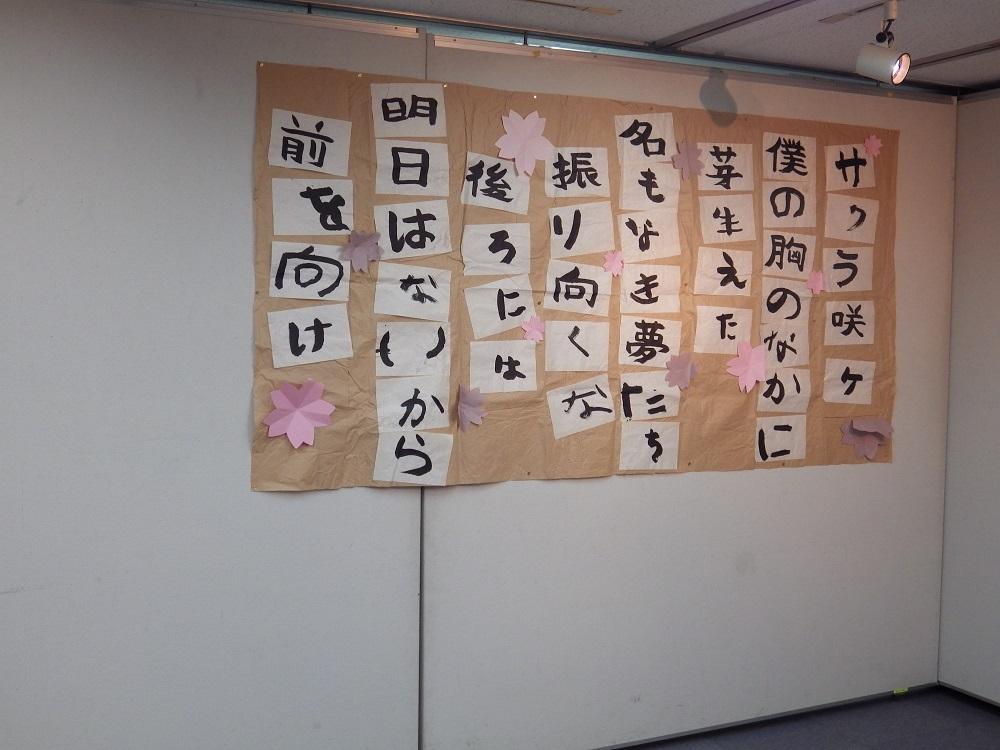 サクラ咲ケ
僕の胸のなかに
芽生えた
名もなき夢たち
振り向くな
後ろには
明日はないから
前を向け